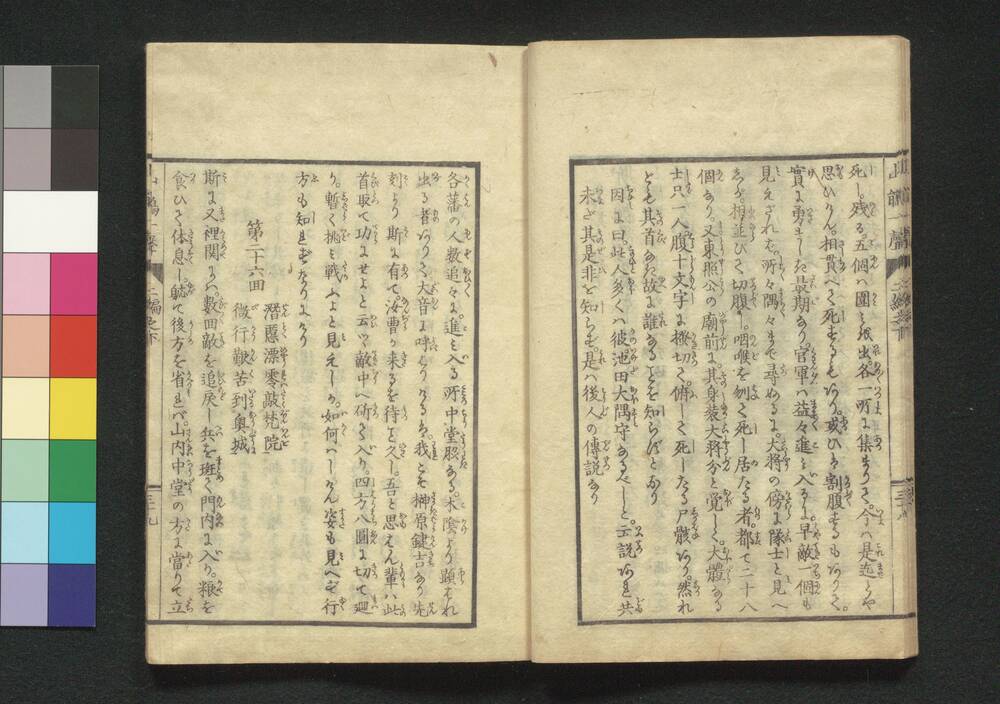 死し。残る五個は圍ミ拔出。各一所に集まりて。今は是迄とや
思ひけん。相貫て死するもあり。或ひは割腹するもありて。
實に勇ましき最期なり。官軍は益々進ミ入るに。早敵一個も
見えざれば。所々隅々まで尋ぬるに。大将の傍に隊士と見へ
相並びて切腹し。咽喉を刎て死し居たる者。都て二十八
個あり。又東照公の廟前に。其身装大将分と覚しく。大體なる
士只一人腹十文字に掻切て。俯して死したる尸骸あり。然れ
ども其首なき故に誰なることを知らずとなり
因に曰。此人多くは彼池田大隅守なるべしと。云説あれ共
未だ其是非を知らず。是は後人の傳説なり
各藩の人数追々に。進ミ入る所中堂脇なる。木陰より顕はれ
出る者ありて大音に呼はりけるは。我こそ榊原鍵吉なり先
刻より斯に有て汝曹が来るを待こと久し。吾と思はん輩は此
首取て功にせよと云つゝ敵中へ斫て入り。四方八面に切て廻
り。暫く挑ミ戦ふよと見えしが。如何はしけん姿も見へず行
方も知れずなりにけり
第二十六回
潜匿漂零敲梵院
微行艱苦到奥城
斯に又裡関には。数回敵を追戻し兵を班て門内に入り。粮を
食ひて体息し。躰て後方を省れば。山内中堂の方に當りて立